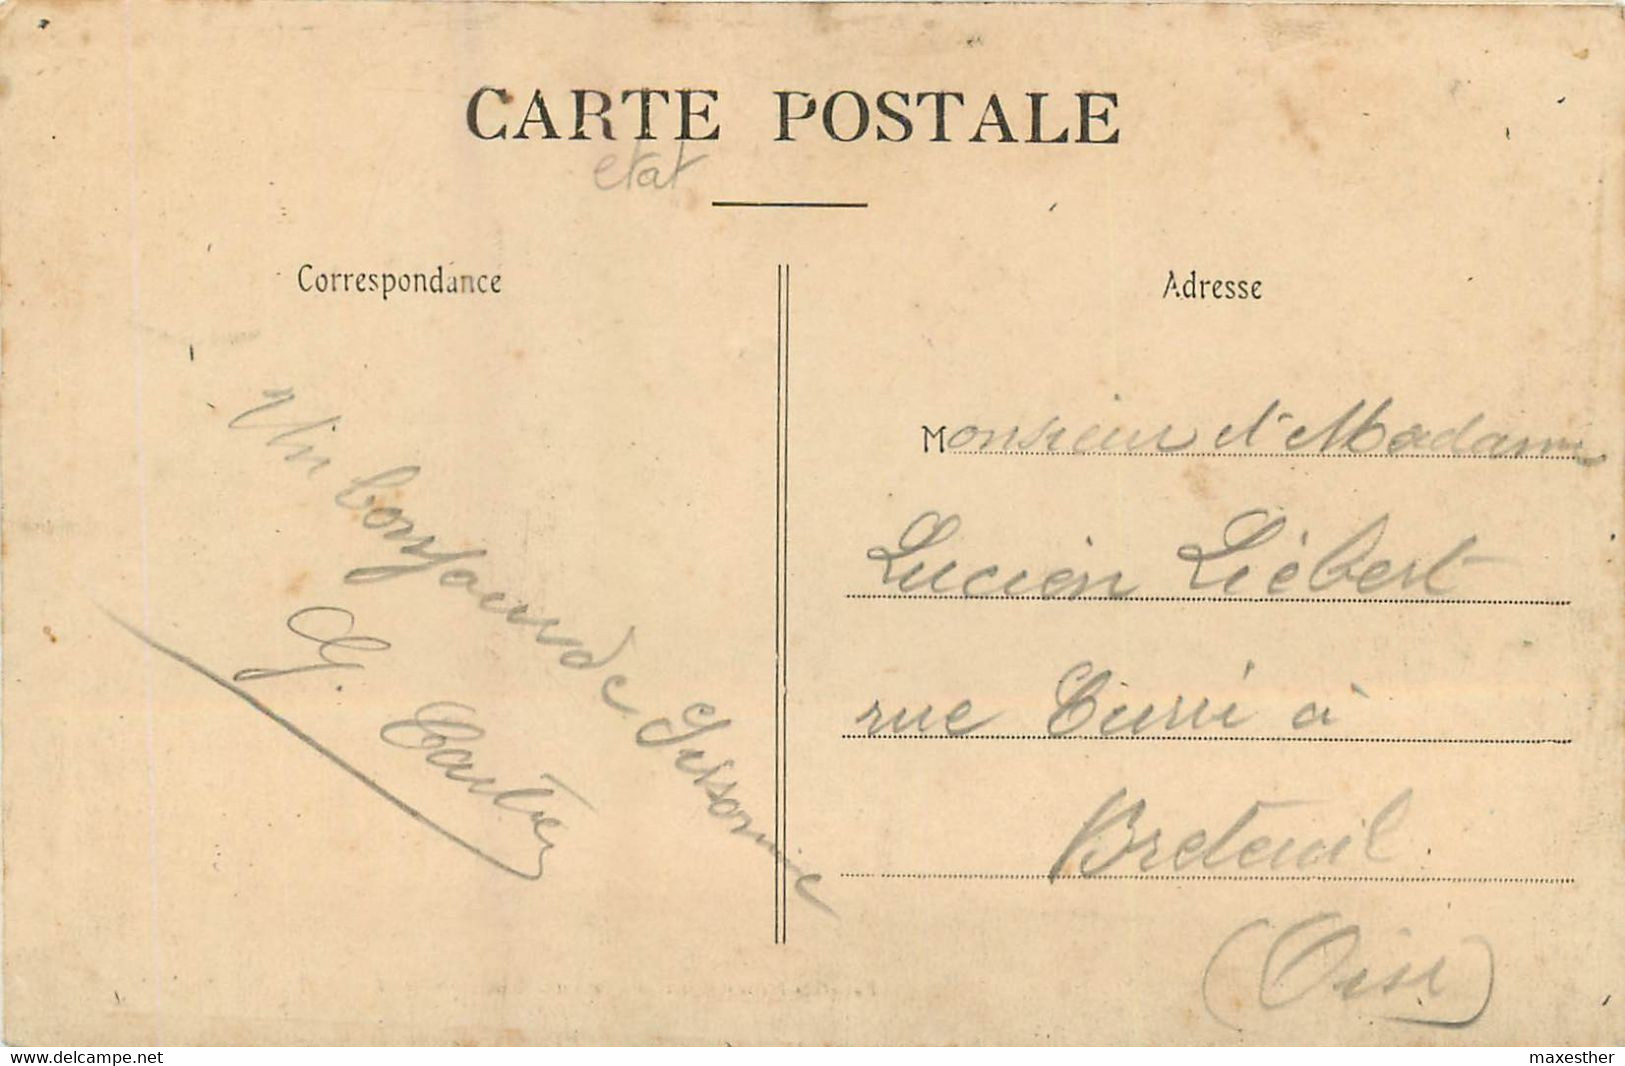 CARTE POSTALE
etat
Correspondance
Un bonjour de Sissonne
G. Cartier
Adresse
Monsieur et Madame
Lucien Liébert
rue à
Breteuil
(Oise)
www.delcampe.net
maxesther